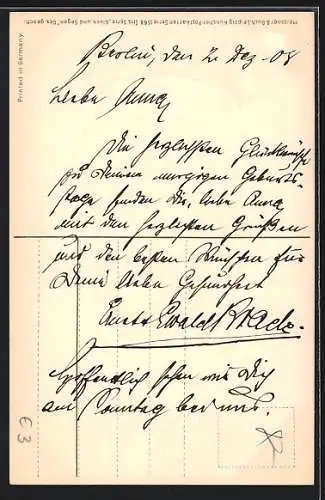 Berlin, den 2. Dez. 08
Liebe Anna
Die herzlichsten Glückwünsche
zu Deinem morgigen Geburts-
tage senden Dir, liebe Anna
mit den herzlichsten Grüßen
und den besten Wünschen für
Deine liebe Gesundheit
Ewald
Hoffentlich sehen wir Dich
am Sonntag bei uns.
€3
Printed in Germany